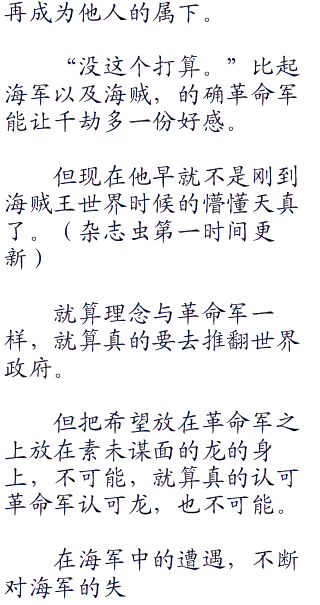 再成为他人的属下。
“没这个打算。”比起
海军以及海贼，的确革命军
能让千劫多一份好感。
但现在他早就不是刚到
海贼王世界时候的懵懂天真
了。（杂志虫第一时间更
新）
就算理念与革命军一
样，就算真的要去推翻世界
政府。
但把希望放在革命军之
上放在素未谋面的龙的身
上，不可能，就算真的认可
革命军认可龙，也不可能。
在海军中的遭遇，不断
对海军的失